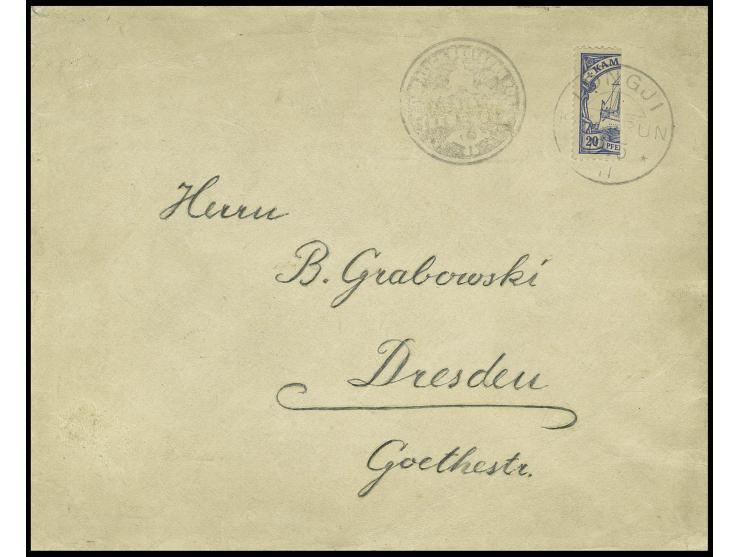 KAM
20 PFE
Herrn
B. Grabowski
Dresden
Goethestr.